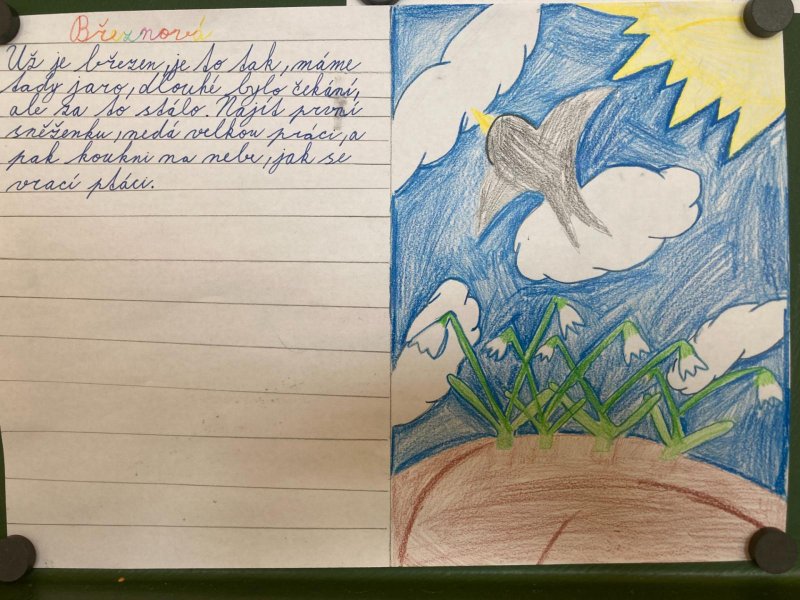 Březnová
Už je březen, je to tak, máme
tady jaro, dlouhé bylo čekání,
ale za to stálo. Najít první
sněženku, nedá velkou práci, a
pak koukni na nebe, jak se
vrací ptáci.